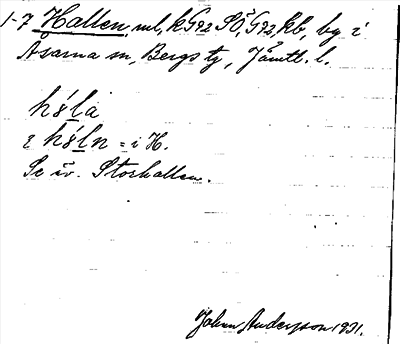 1-7 Hallen, ml, kG92 SÖ, G92, kb, by i
Åsarna sn, Bergs tg, Jämtl. l.
i = i H.
Se äv. Storhallen.
Johan Anderson 1931.